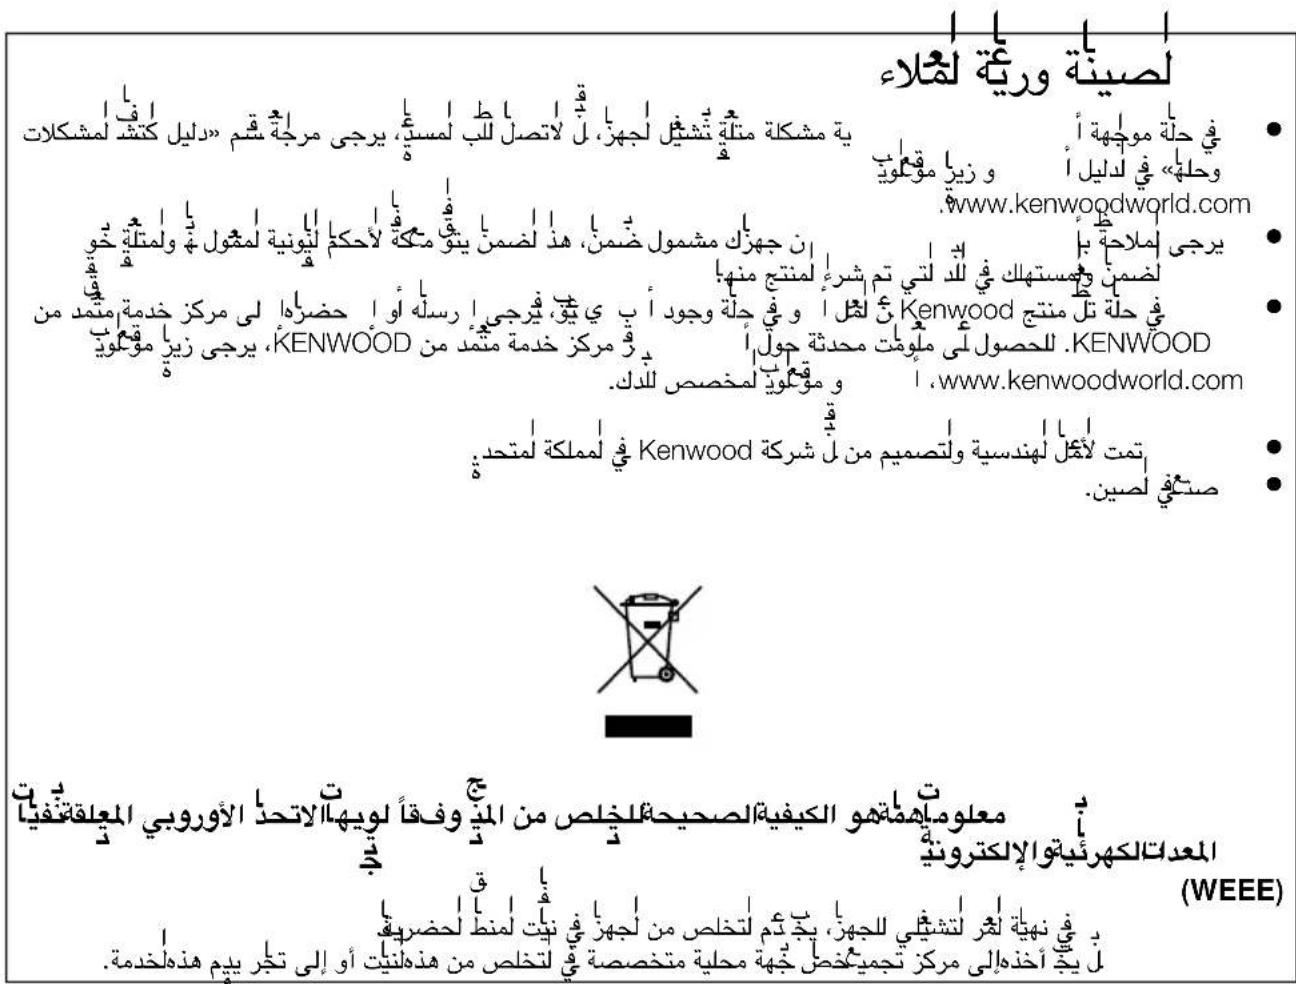 الصيانة ورعاية العملاء
• في حالة مواجهة أية مشكلة متعلقة بتشغيل الجهاز، قبل الاتصال لطلب المساعدة، يرجى مراجعة قسم «دليل اكتشاف المشكلات
وحلها» في الدليل أو زيارة موقع الويب
www.kenwoodworld.com.
• يرجى الملاحظة بأن جهازك مشمول بضمان، هذا الضمان يتوافق مع كافة الأحكام القانونية المعمول بها والمتعلقة بحقوق
الضمان والمستهلك في البلد التي تم شراء المنتج منها.
• في حالة تعطل منتج Kenwood عن العمل أو في حالة وجود أي عيوب، فيرجى إرساله أو إحضاره إلى مركز خدمة معتمد من
KENWOOD. للحصول على معلومات محدثة حول أقرب مركز خدمة معتمد من KENWOOD، يرجى زيارة موقع الويب
www.kenwoodworld.com، أو موقع الويب المخصص لبلدك.
• تمت الأعمال الهندسية والتصميم من قبل شركة Kenwood في المملكة المتحدة.
• صنع في الصين.
معلومات هامة هو الكيفية الصحيحة للتخلص من المنتج وفقاً لتوجيهات الاتحاد الأوروبي المتعلقة بنفايات
المعدات الكهربائية والإلكترونية
(WEEE)
في نهاية العمر التشغيلي للجهاز، يجب عدم التخلص من الجهاز في نفايات المناطق الحضرية.
بل يجب أخذه إلى مركز تجميع خاص بجهة محلية متخصصة في التخلص من هذه النفايات أو إلى تاجر يقدم هذه الخدمة.